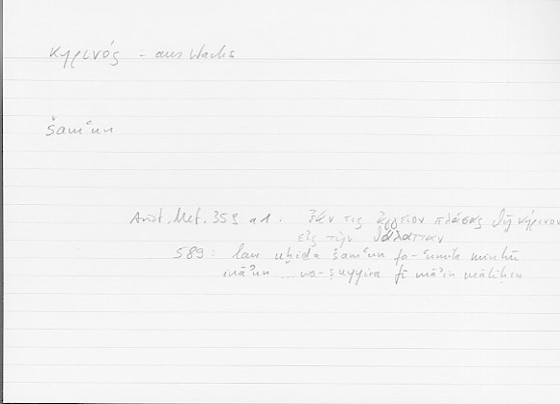 κηρινός – aus Wachs
šamʿun
Arist. Met. 359 a 1. ἐάν τις ἀγγεῖον πλάσας θῇ κήρινον
εἰς τὴν θάλατταν
589: lau uḫiḏa šamʿun fa-ʿumila minhū
ināʾun ... wa-ṣuyyira fī māʾin māliḥin